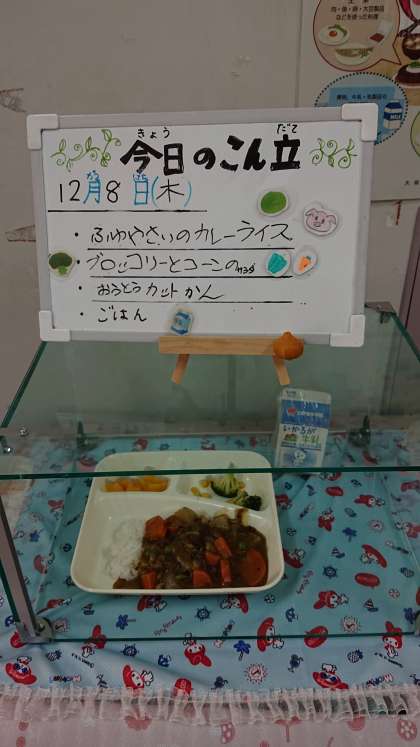 きょう だて
今日のこん立
12月8日(木)
・ふゆやさいのカレーライス
・ブロッコリーとコーンのサラダ
・おうとうカットかん
・ごはん
いかるが牛乳